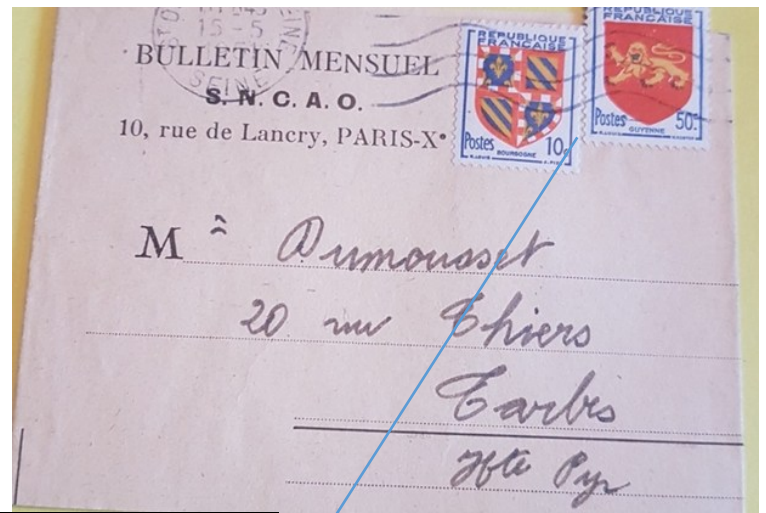 15-5
SEINE
BULLETIN MENSUEL
S. N. C. A. O.
10, rue de Lancry, PARIS-Xe
REPUBLIQUE
FRANÇAISE
Postes 10c
BOURGOGNE
REPUBLIQUE
FRANÇAISE
Postes 50c
GUYENNE
M
Dumousset
20 rue Thiers
Tarbes
Htes Pyr